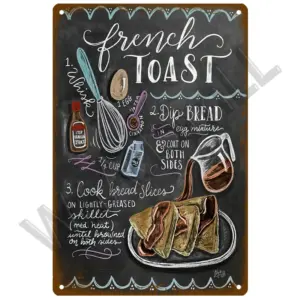 french
TOAST
1. Whisk
1 EGG
1 tsp
1/4 cup
2. Dip BREAD
IN egg mixture
& COAT ON
BOTH
SIDES
3. Cook bread slices
ON LIGHTLY-GREASED
skillet
(med heat)
until browned
on both sides